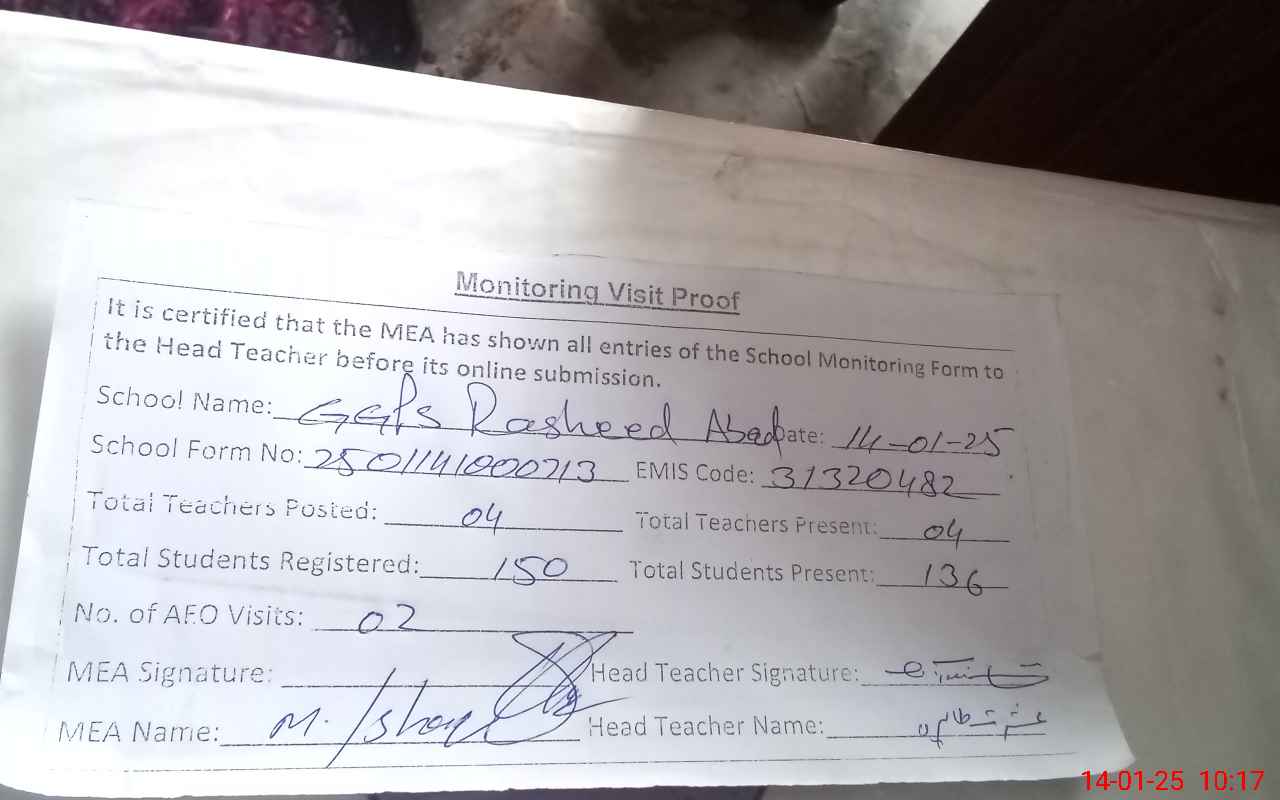 Monitoring Visit Proof
It is certified that the MEA has shown all entries of the School Monitoring Form to
the Head Teacher before its online submission.
School Name: GGPS Rasheed Abad Date: 14-01-25
School Form No: 2501141000713 EMIS Code: 31320482
Total Teachers Posted: 04 Total Teachers Present: 04
Total Students Registered: 150 Total Students Present: 136
No. of AEO Visits: 02
MEA Signature: Head Teacher Signature:
MEA Name: M. Ishaq Head Teacher Name:
14-01-25 10:17